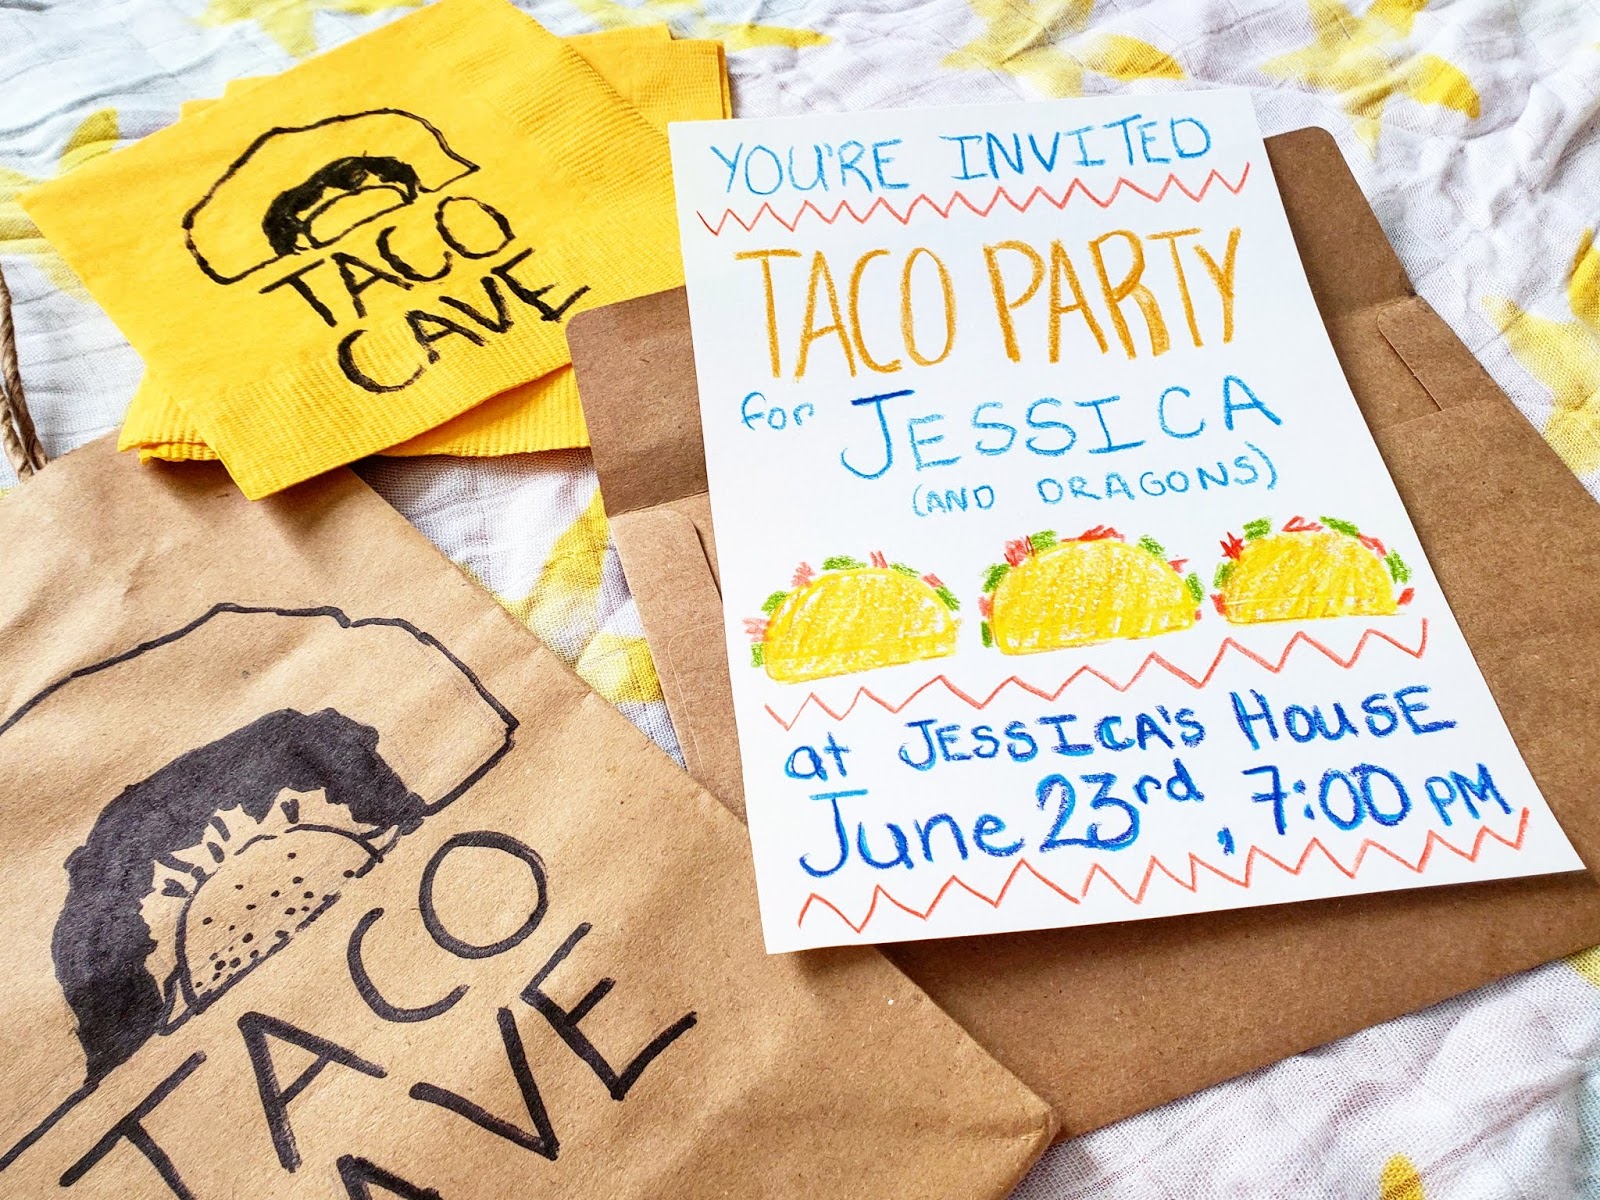 TACO
CAVE
YOU'RE INVITED
TACO PARTY
for JESSICA
(AND DRAGONS)
at JESSICA'S HOUSE
June 23rd, 7:00 PM
TACO
AVE